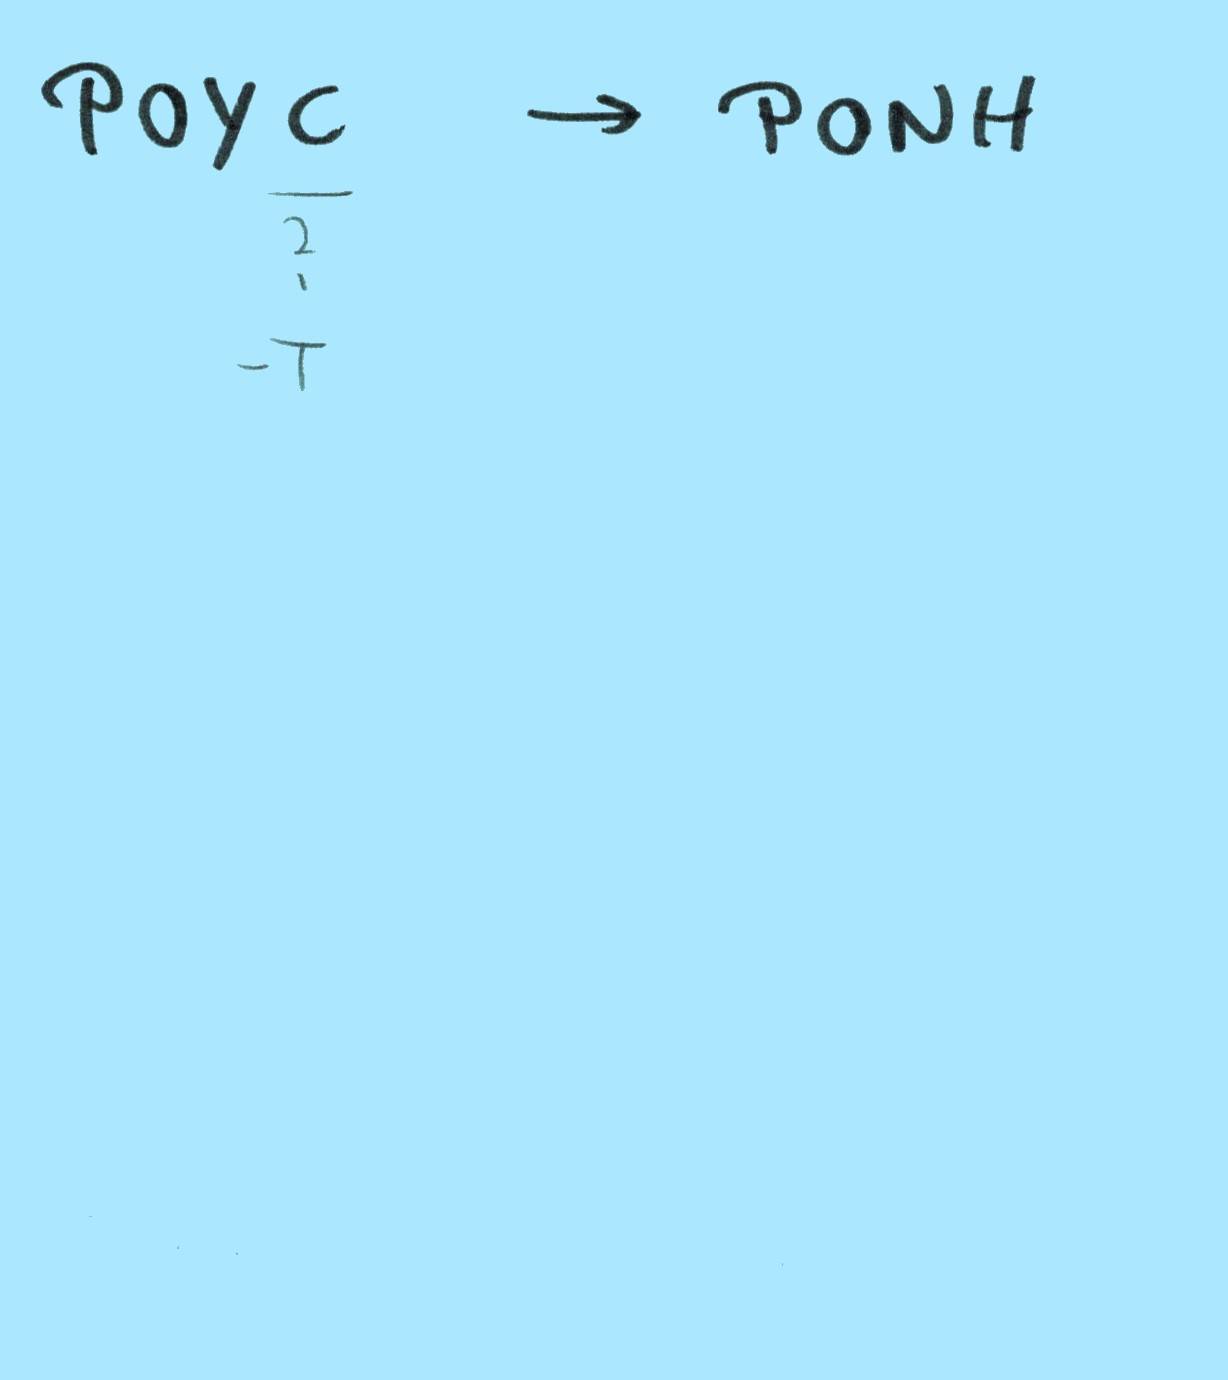 POYC → PONH
2
'
-T